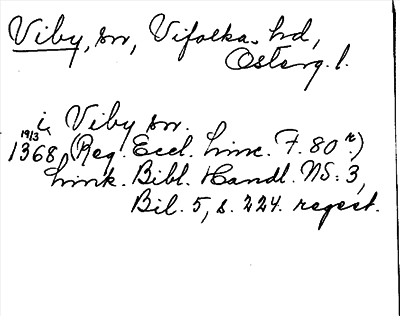 Viby, sn, Vifolka hd,
Österg. l.
i Viby sn.
19/3
1368, (Reg. Eccl. Linc. F. 80 r.)
Link. Bibl. Handl. NS: 3,
Bil. 5, s. 224. regest.